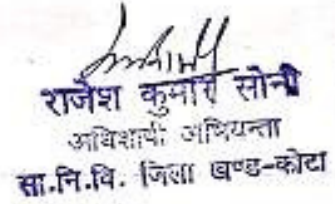 राजेश कुमार सोनी
अधिशाषी अभियन्ता
सा.नि.वि. जिला खण्ड-कोटा